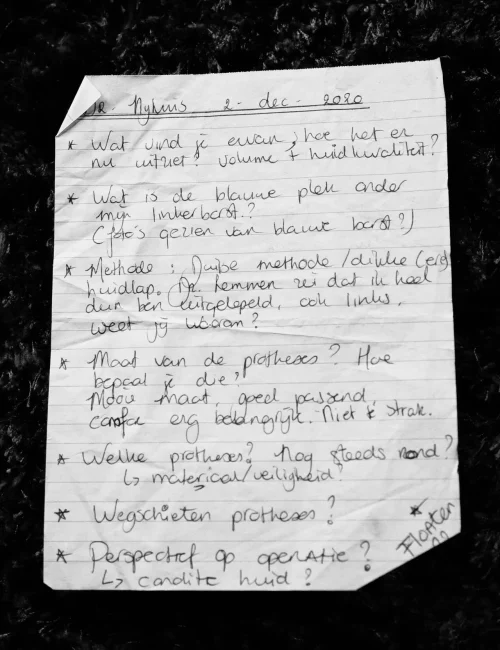 DR. Nyhuis 2 - dec - 2020
* Wat vind je ervan, hoe het er
nu uitziet? volume + huidkwaliteit?
* Wat is de blauwe plek onder
mijn linkerborst?
(foto's gezien van blauwe borst?)
* Methode: methode / dikke (erg)
huidlap. Dr. Lemmen zei dat ik heel
dun ben uitgelepeld, ook links.
weet jij waarom?
* Maat van de protheses? Hoe
bepaal je die?
Mooie maat, goed passend,
comfor erg belangrijk. Niet te strak.
* Welke protheses? Nog steeds rond?
↳ materiaal/veiligheid?
* Wegschieten protheses?
* Perspectief op operatie?
↳ conditie huid?
* Flonten
??